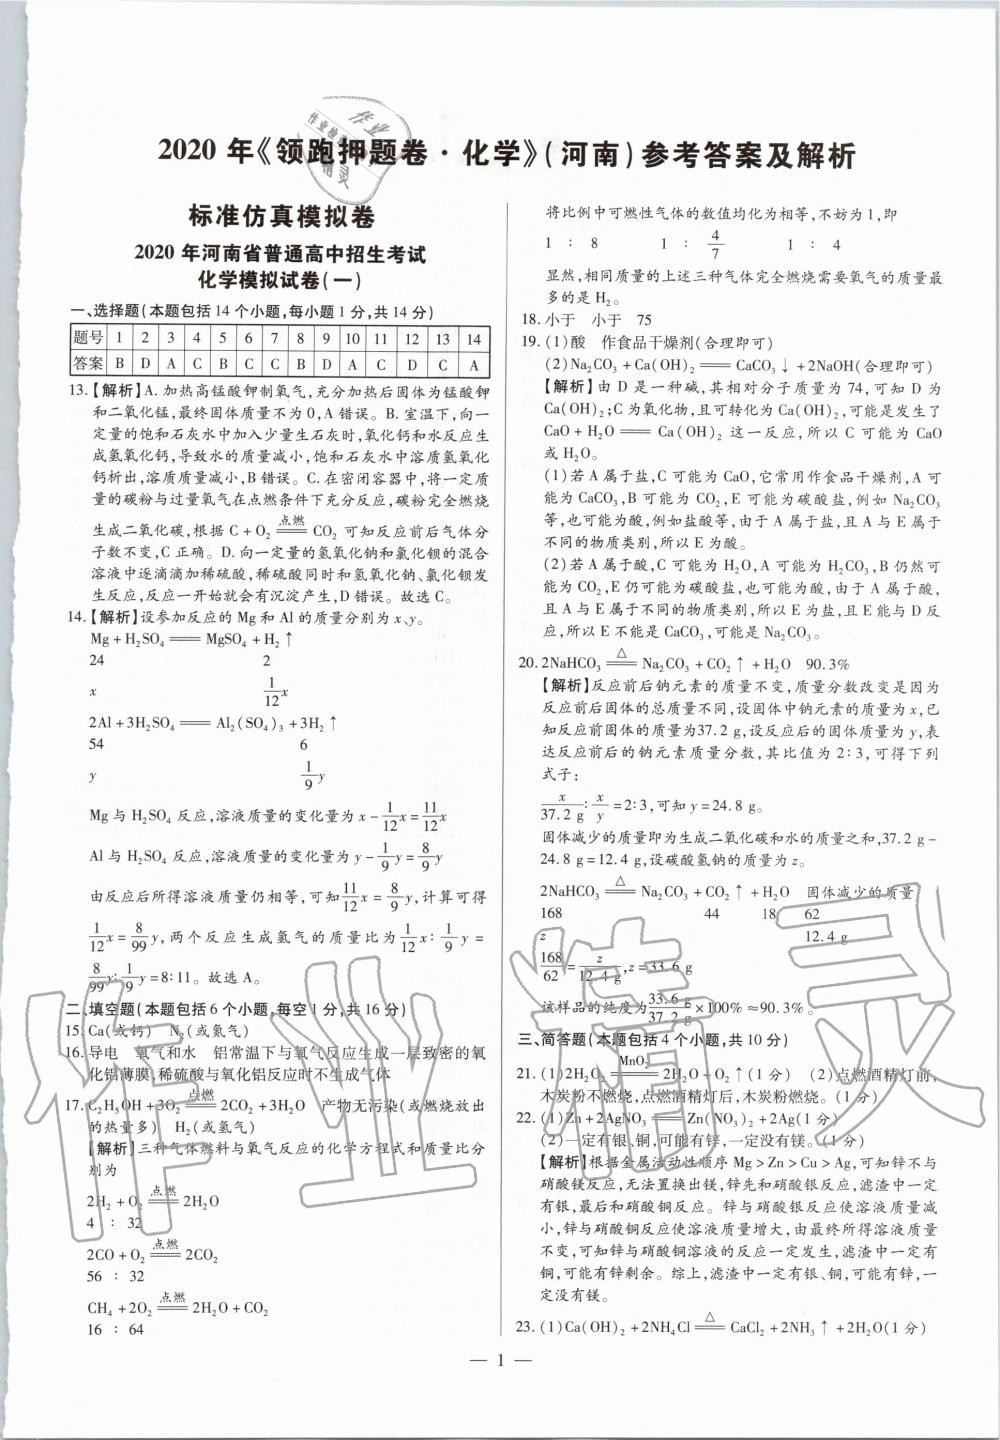 2020年《领跑押题卷·化学》(河南)参考答案及解析
标准仿真模拟卷
2020年河南省普通高中招生考试
化学模拟试卷(一)
一、选择题(本题包括14个小题,每小题1分,共14分)
题号 1 2 3 4 5 6 7 8 9 10 11 12 13 14
答案 B D A C B C C B D A C D C A
13.【解析】A.加热高锰酸钾制氧气,充分加热后固体为锰酸钾
和二氧化锰,最终固体质量不为0,A错误。B.室温下,向一
定量的饱和石灰水中加入少量生石灰时,氧化钙和水反应生
成氢氧化钙,导致水的质量减小,饱和石灰水中溶质氢氧化
钙析出,溶质质量减小,B错误。C.在密闭容器中,将一定质
量的碳粉与过量氧气在点燃条件下充分反应,碳粉完全燃烧
生成二氧化碳,根据C+O₂ 点燃═══ CO₂ 可知反应前后气体分
子数不变,C正确。D.向一定量的氢氧化钠和氯化钡的混合
溶液中逐滴滴加稀硫酸,稀硫酸同时和氢氧化钠、氯化钡发
生反应,反应一开始就会有沉淀产生,D错误。故选C。
14.【解析】设参加反应的Mg和Al的质量分别为x、y。
Mg+H₂SO₄═══MgSO₄+H₂↑
24 2
x 1/12 x
2Al+3H₂SO₄═══Al₂(SO₄)₃+3H₂↑
54 6
y 1/9 y
Mg与H₂SO₄反应,溶液质量的变化量为x-1/12 x=11/12 x
Al与H₂SO₄反应,溶液质量的变化量为y-1/9 y=8/9 y
由反应后所得溶液质量仍相等,可知11/12 x=8/9 y,计算可得
1/12 x=8/99 y,两个反应生成氢气的质量比为1/12 x∶1/9 y=
8/99 y∶1/9 y=8∶11。故选A。
二、填空题(本题包括6个小题,每空1分,共16分)
15.Ca(或钙) N₂(或氮气)
16.导电 氧气和水 铝常温下与氧气反应生成一层致密的氧
化铝薄膜,稀硫酸与氧化铝反应时不生成气体
17.C₂H₅OH+3O₂ 点燃═══ 2CO₂+3H₂O 产物无污染(或燃烧放出
的热量多) H₂(或氢气)
【解析】三种气体燃料与氧气反应的化学方程式和质量比分
别为
2H₂+O₂ 点燃═══ 2H₂O
4 ∶ 32
2CO+O₂ 点燃═══ 2CO₂
56 ∶ 32
CH₄+2O₂ 点燃═══ 2H₂O+CO₂
16 ∶ 64
将比例中可燃性气体的数值均化为相等,不妨为1,即
1 ∶ 8 1 ∶ 4/7 1 ∶ 4
显然,相同质量的上述三种气体完全燃烧需要氧气的质量最
多的是H₂。
18.小于 小于 75
19.(1)酸 作食品干燥剂(合理即可)
(2)Na₂CO₃+Ca(OH)₂═══CaCO₃↓+2NaOH(合理即可)
【解析】由D是一种碱,其相对分子质量为74,可知D为
Ca(OH)₂;C为氧化物,且可转化为Ca(OH)₂,可能是发生了
CaO+H₂O═══Ca(OH)₂ 这一反应,所以C可能为CaO
或H₂O。
(1)若A属于盐,C可能为CaO,它常用作食品干燥剂,A可
能为CaCO₃,B可能为CO₂,E可能为碳酸盐,例如Na₂CO₃
等,也可能为酸,例如盐酸等,由于A属于盐,且A与E属于
不同的物质类别,所以E为酸。
(2)若A属于酸,C可能为H₂O,A可能为H₂CO₃,B仍然可
能为CO₂,E仍可能为碳酸盐,也可能为酸,由于A属于酸,
且A与E属于不同的物质类别,所以E为盐,且E能与D反
应,所以E不能是CaCO₃,可能是Na₂CO₃。
20.2NaHCO₃ △═══ Na₂CO₃+CO₂↑+H₂O 90.3%
【解析】反应前后钠元素的质量不变,质量分数改变是因为
反应前后固体的总质量不同,设固体中钠元素的质量为x,已
知反应前固体的质量为37.2 g,设反应后的固体质量为y,表
达反应前后的钠元素质量分数,其比值为2∶3,可得下列
式子:
x/37.2 g∶x/y=2∶3,可知y=24.8 g。
固体减少的质量即为生成二氧化碳和水的质量之和,37.2 g-
24.8 g=12.4 g,设碳酸氢钠的质量为z。
2NaHCO₃ △═══ Na₂CO₃+CO₂↑+H₂O 固体减少的质量
168 44 18 62
z 12.4 g
168/62=z/12.4 g,z=33.6 g
该样品的纯度为33.6 g/37.2 g×100%≈90.3%。
三、简答题(本题包括4个小题,共10分)
21.(1)2H₂O₂ MnO₂═══ 2H₂O+O₂↑(1分) (2)点燃酒精灯前,
木炭粉不燃烧,点燃酒精灯后,木炭粉燃烧。(1分)
22.(1)Zn+2AgNO₃═══Zn(NO₃)₂+2Ag(1分)
(2)一定有银、铜,可能有锌,一定没有镁。(1分)
【解析】根据金属活动性顺序Mg>Zn>Cu>Ag,可知锌不与
硝酸镁反应,无法置换出镁,锌先和硝酸银反应,滤渣中一定
有银,最后和硝酸铜反应。锌与硝酸银反应使溶液质量减
小,锌与硝酸铜反应使溶液质量增大,由最终所得溶液质量
不变,可知锌与硝酸铜溶液的反应一定发生,滤渣中一定有
铜,可能有锌剩余。综上,滤渣中一定有银、铜,可能有锌,一
定没有镁。
23.(1)Ca(OH)₂+2NH₄Cl △═══ CaCl₂+2NH₃↑+2H₂O(1分)
— 1 —
作业精灵